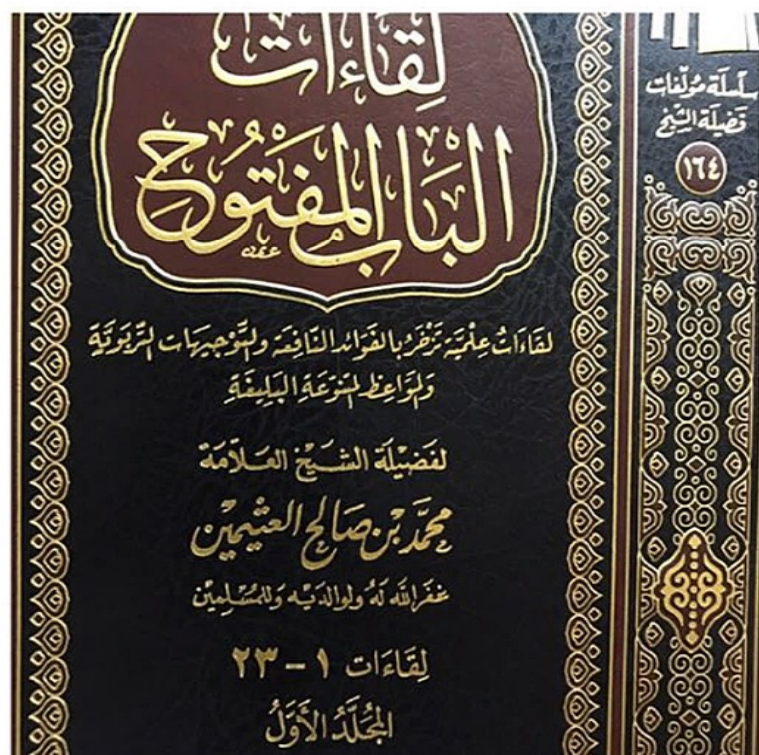 لِقَاءَات
البَابِ المَفْتُوحِ
لقَاءَاتٌ عِلْمِيَّة تَزْخَرُ بالفَوَائد النَّافِعَة والتَّوْجيهَات التَّربَويَّة
والمَوَاعِظ المتنوّعَةِ البَلِيغَةِ
لفَضيْلَة الشَّيْخ العَلَّامَة
محمَّد بْن صَالح العثيمين
غفَر اللَّه لَهُ ولوَالدَيْه وَللمُسْلِميْن
لِقَاءَات ١ - ٢٣
المُجَلَّدُ الأَوَّلُ
سِلسلَة مُؤلّفات
فَضيلَة الشّيْخ
١٦٤